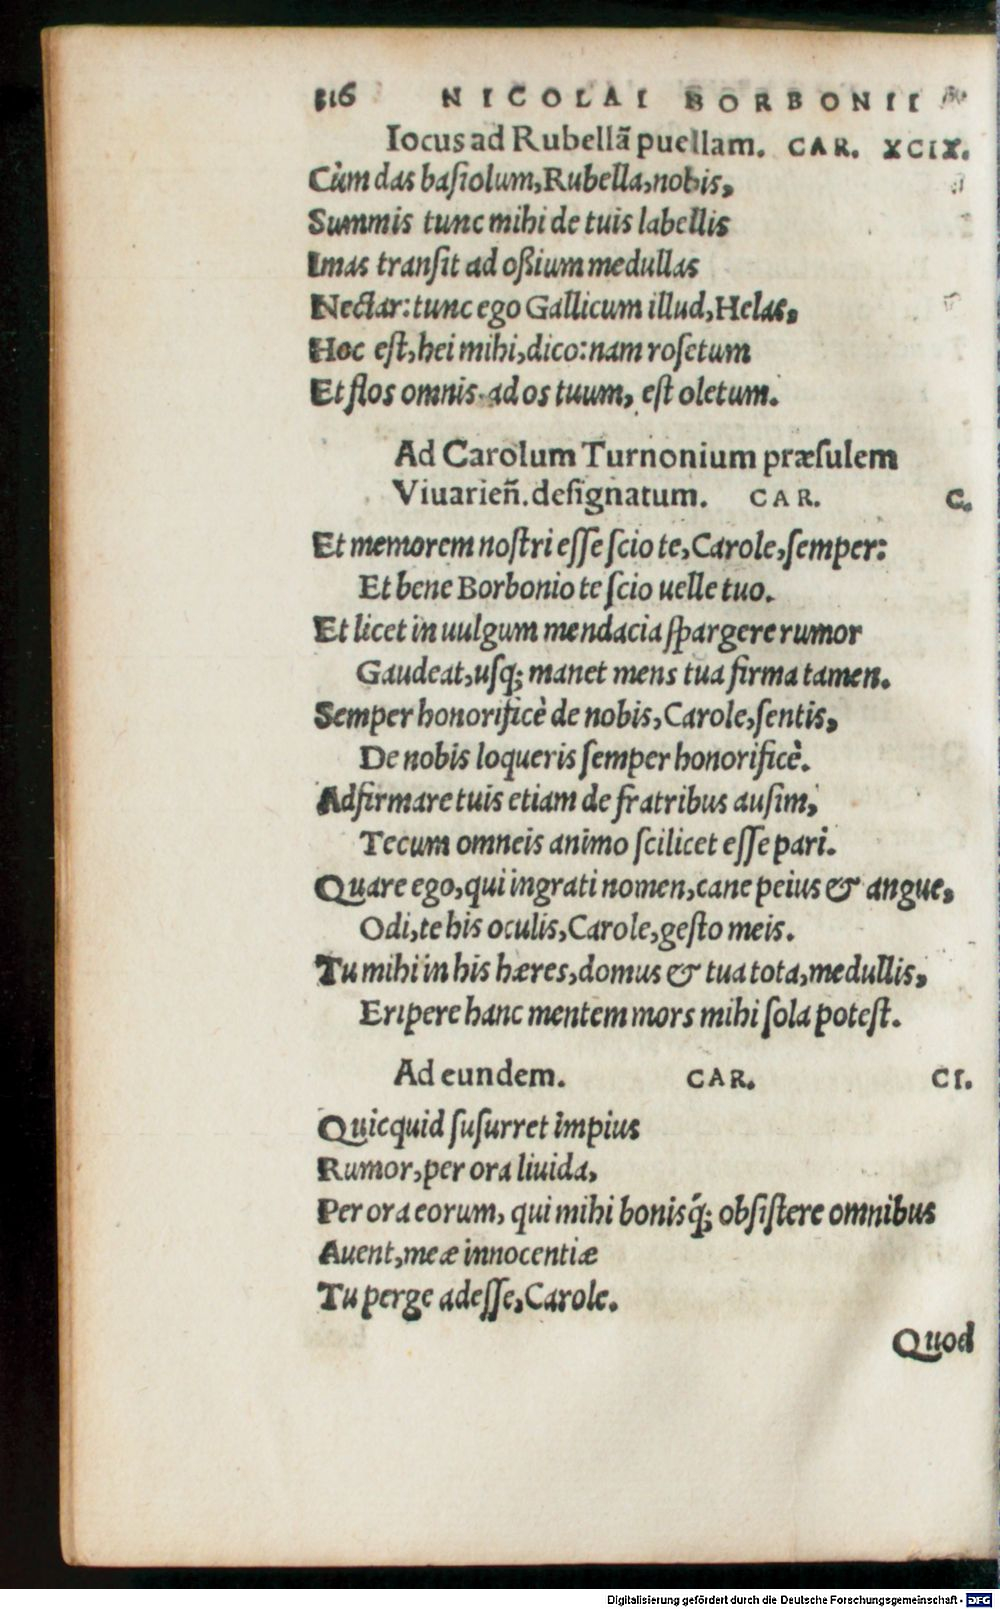 116 NICOLAI BORBONII
Iocus ad Rubellã puellam. CAR. XCIX.
Cùm das basiolum, Rubella, nobis,
Summis tunc mihi de tuis labellis
Imas transit ad oßium medullas
Nectar: tunc ego Gallicum illud, Helas,
Hoc est, hei mihi, dico: nam rosetum
Et flos omnis ad os tuum, est oletum.
Ad Carolum Turnonium præsulem
Viuarieñ. designatum. CAR. C.
Et memorem nostri esse scio te, Carole, semper:
Et bene Borbonio te scio uelle tuo.
Et licet in uulgum mendacia spargere rumor
Gaudeat, usq; manet mens tua firma tamen.
Semper honorificè de nobis, Carole, sentis,
De nobis loqueris semper honorificè.
Adfirmare tuis etiam de fratribus ausim,
Tecum omneis animo scilicet esse pari.
Quare ego, qui ingrati nomen, cane peius & angue,
Odi, te his oculis, Carole, gesto meis.
Tu mihi in his hæres, domus & tua tota, medullis,
Eripere hanc mentem mors mihi sola potest.
Ad eundem. CAR. CI.
Quicquid susurret impius
Rumor, per ora liuida,
Per ora eorum, qui mihi bonisq́; obsistere omnibus
Auent, meæ innocentiæ
Tu perge adesse, Carole.
Quod
Digitalisierung gefördert durch die Deutsche Forschungsgemeinschaft - DFG